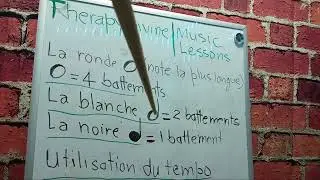 Therap vine Music
Lessons
La ronde (note la plus longue)
= 4 battements
La blanche = 2 battements
La noire = 1 battement
Utilisation du tembo